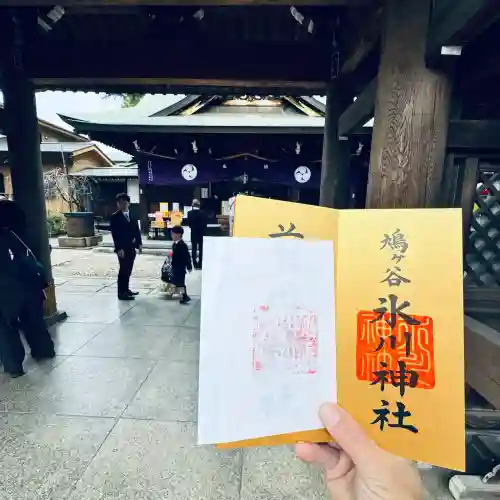 鳩ヶ谷
氷川神社